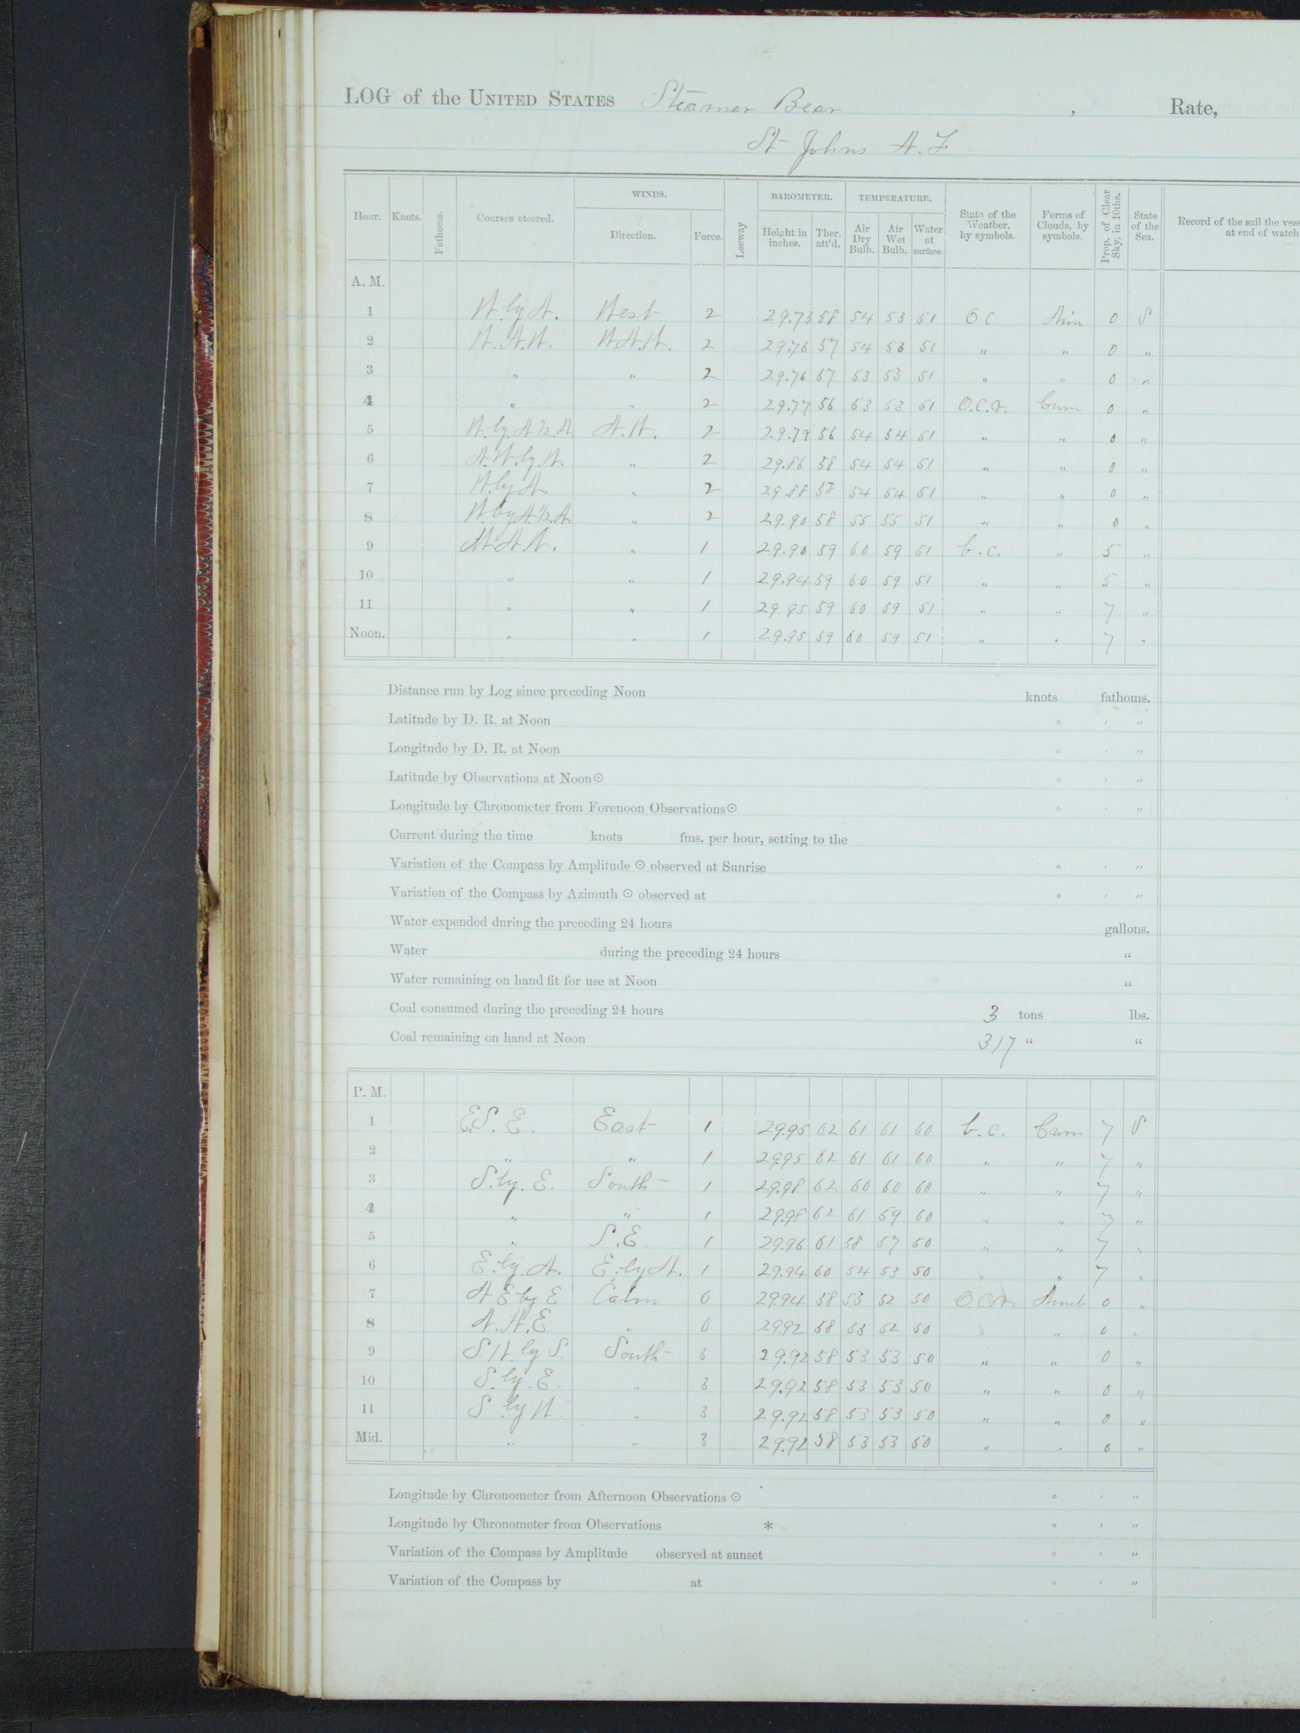 LOG of the UNITED STATES Steamer Bear , Rate,
St Johns N. F
Hour. Knots. Fathoms. Courses steered. WINDS. Direction. Force. Leeway BAROMETER. Height in inches. Ther. att'd. TEMPERATURE. Air Dry Bulb. Air Wet Bulb. Water at surface. State of the Weather, by symbols. Forms of Clouds, by symbols. Prop. of Clear Sky, in 10ths. State of the Sea. Record of the sail the vess at end of watch
A. M.
1 W. by N. West 2 29.73 58 54 53 51 O C Nim 0 S
2 W. N. W. W.N.W. 2 29.76 57 54 53 51 " " 0 "
3 " " 2 29.76 57 53 53 51 " " 0 "
4 " " 2 29.77 56 53 53 51 O.C.R. Cum 0 "
5 W. by N ½ N. N. W. 2 29.79 56 54 54 51 " " 0 "
6 N. W. by W. " 2 29.86 58 54 54 51 " " 0 "
7 W. by N. " 2 29.88 58 54 54 51 " " 0 "
8 W. by N ½ N. " 2 29.90 58 55 55 51 " " 0 "
9 W. N. W. " 1 29.90 59 60 59 51 b. c. " 5 "
10 " " 1 29.94 59 60 59 51 " " 5 "
11 " " 1 29 95 59 60 59 51 " " 7 "
Noon. " " 1 29.95 59 60 59 51 " " 7 "
Distance run by Log since preceding Noon knots fathoms.
Latitude by D. R. at Noon ° ' "
Longitude by D. R. at Noon ° ' "
Latitude by Observations at Noon ☉ ° ' "
Longitude by Chronometer from Forenoon Observations ☉ ° ' "
Current during the time knots fms. per hour, setting to the
Variation of the Compass by Amplitude ☉ observed at Sunrise ° ' "
Variation of the Compass by Azimuth ☉ observed at ° ' "
Water expended during the preceding 24 hours gallons.
Water during the preceding 24 hours "
Water remaining on hand fit for use at Noon "
Coal consumed during the preceding 24 hours 3 tons lbs.
Coal remaining on hand at Noon 317 " "
P. M.
1 E.S. E. East 1 29.95 62 61 61 60 b. c. Cum 7 S
2 " " 1 29.95 62 61 61 60 " " 7 "
3 S. by. E. South 1 29.98 62 60 60 60 " " 7 "
4 " " 1 29.98 62 61 59 60 " " 7 "
5 " S. E 1 29.96 61 58 57 50 " " 7 "
6 E. by. N. E. by N. 1 29.94 60 54 53 50 " " 7 "
7 N E by E Calm 0 29.94 58 53 52 50 Nimb 0 "
8 N. N. E " 0 29.92 58 53 52 50 " 0 "
9 S. W. by S. South 3 29.92 58 53 53 50 " " 0 "
10 S. by. E. " 3 29.92 58 53 53 50 " " 0 "
11 S by W. " 3 29.92 58 53 53 50 " " 0 "
Mid. " " 3 29.92 58 53 53 50 " " 0 "
Longitude by Chronometer from Afternoon Observations ☉ ° ' "
Longitude by Chronometer from Observations * ° ' "
Variation of the Compass by Amplitude observed at sunset ° ' "
Variation of the Compass by at ° ' "